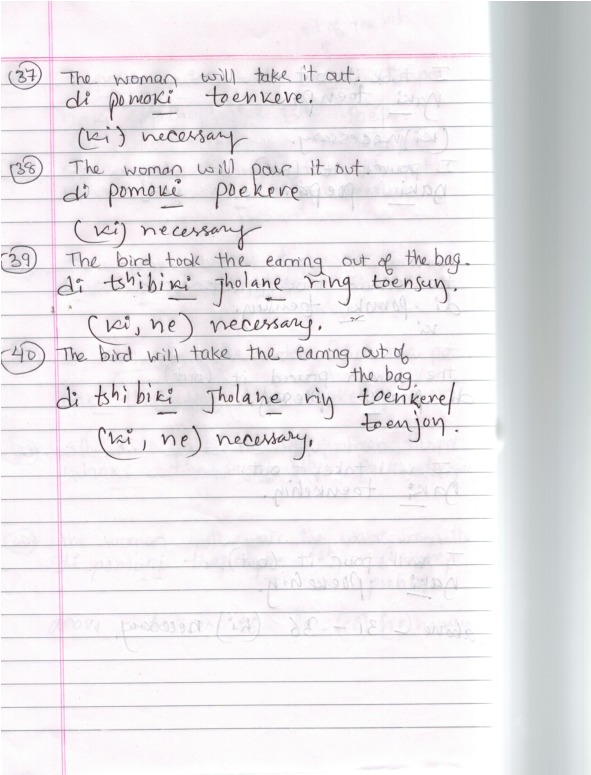 (37) The woman will take it out.
di pomoki toenkeve.
(ki) necessary
(38) The woman will pour it out.
di pomoki poekere
(ki) necessary
(39) The bird took the earring out of the bag.
di tshibiki Jholane ring toensun.
(ki, ne) necessary.
(40) The bird will take the earring out of
the bag.
di tshibiki Jholane riy toenkere/
toenjon.
(ki, ne) necessary.